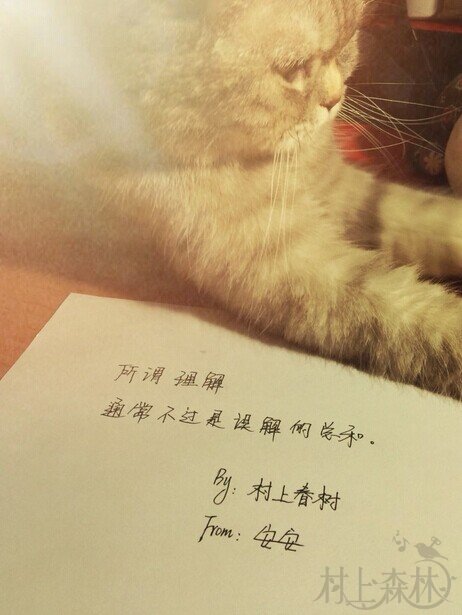 所谓理解
通常不过是误解的总和。
By: 村上春树
From: 安安
村上森林